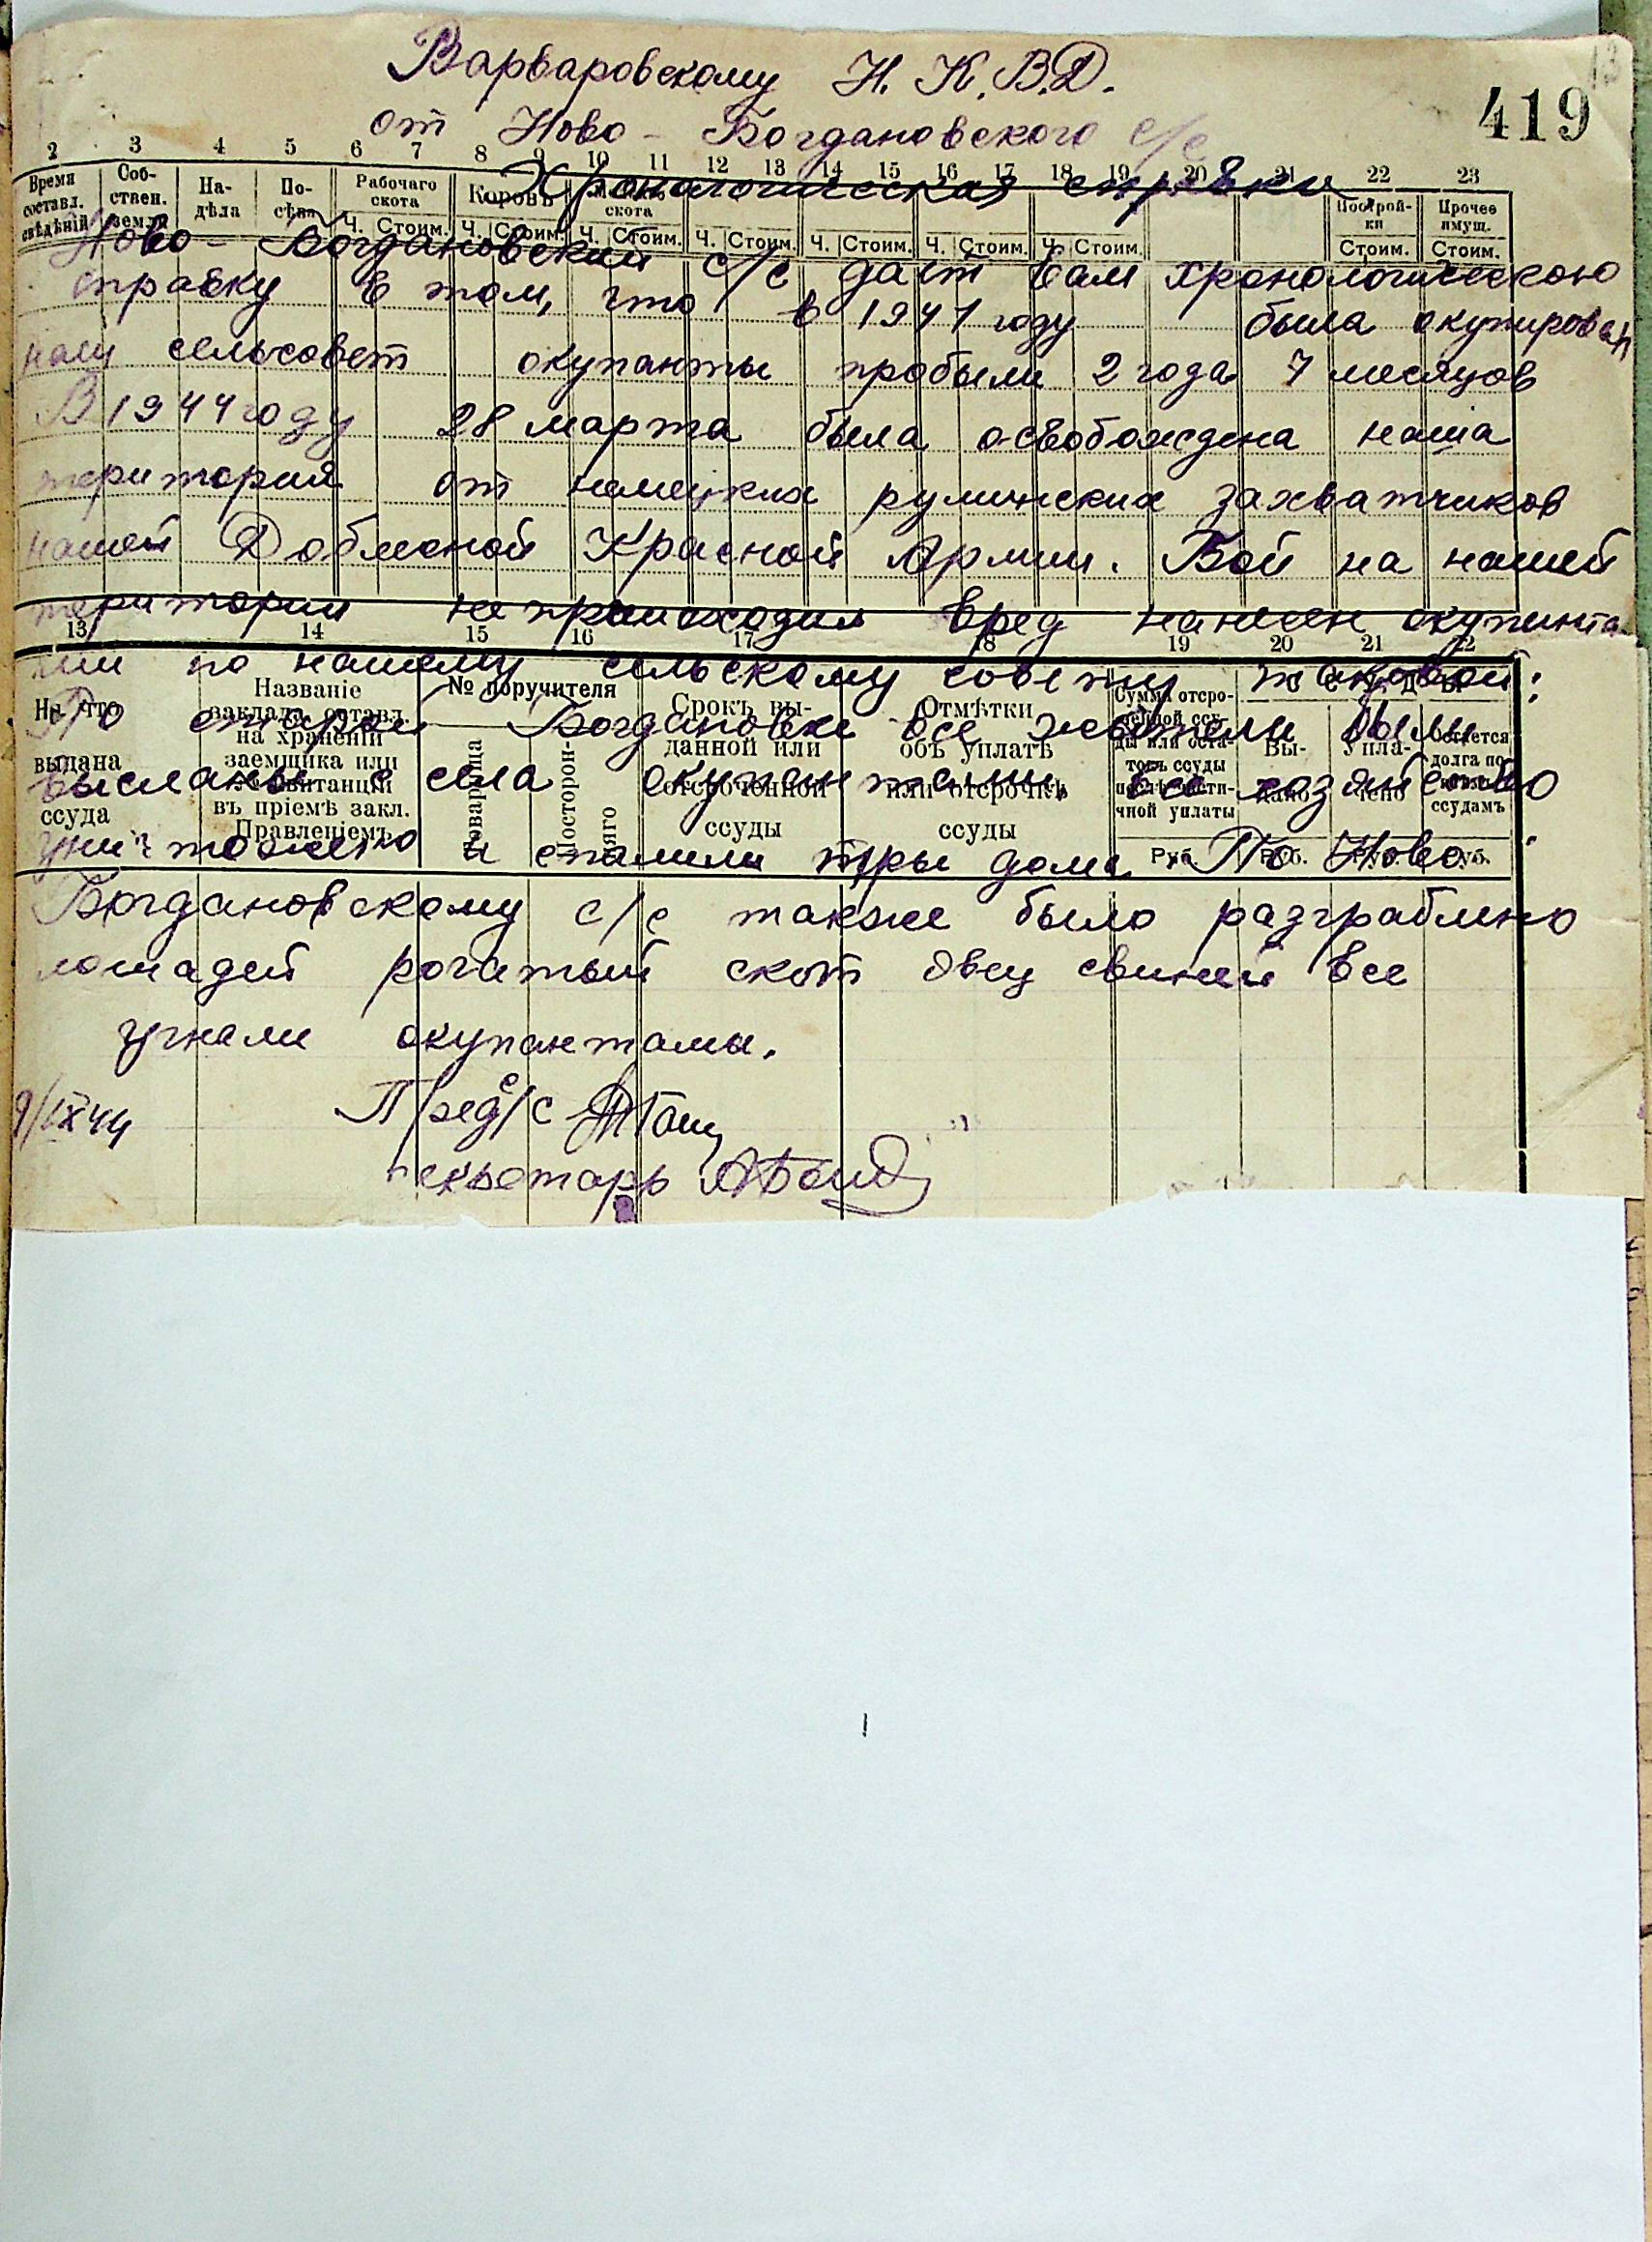 419
Варваровскому Н. К. В. Д.
от Ново-Богдановского с/с
2 3 4 5 6 7 8 9 10 11 12 13 14 15 16 17 18 19 20 21 22 23
Хронологическая справка
Время составл. свѣдѣній Соб-ствен. земл. На-дѣла По-сѣва Рабочаго скота Коровъ скота Построй-ки Прочее имущ.
Ч. Стоим. Ч. Стоим. Ч. Стоим. Ч. Стоим. Ч. Стоим. Ч. Стоим. Ч. Стоим. Стоим. Стоим.
Ново-Богдановский с/с дает вам хронологическою
справку в том, что в 1941 году была окупирован
наш сельсовет окупанты пробыли 2 года 7 месяцов
В 1944 году 28 марта была освобождена наша
територия от немецких румынских захватчиков
нашей Доблесной Красной Армии. Бой на нашей
територии не происходил вред нанесен окупанта-
13 14 15 16 17 18 19 20 21 22
ми по нашему сельскому совету таковой:
На что выдана ссуда
Названіе заклада, оставл. на храненіи заемщика или квитанціи въ пріемѣ закл. Правленіемъ
№ поручителя
Товарища
Посторон-няго
Срокъ вы-данной или отсроченной ссуды
Отмѣтки объ уплатѣ или отсрочкѣ ссуды
Сумма отсро-ченной ссу-ды или оста-токъ ссуды чной уплаты
Вы-дано Упла-чено Остается долга по ссудамъ
Руб. Руб. Руб. Руб.
По старой Богдановке все жители были
высланы с села окупантами, все хозяйсово
уничтожено и спалили тры дома По Ново
Богдановскому с/с также было разграблено
лошадей рогатый скот овец свиней все
угнали окупантамы.
9/IX 44 Пред с/с
секретарь